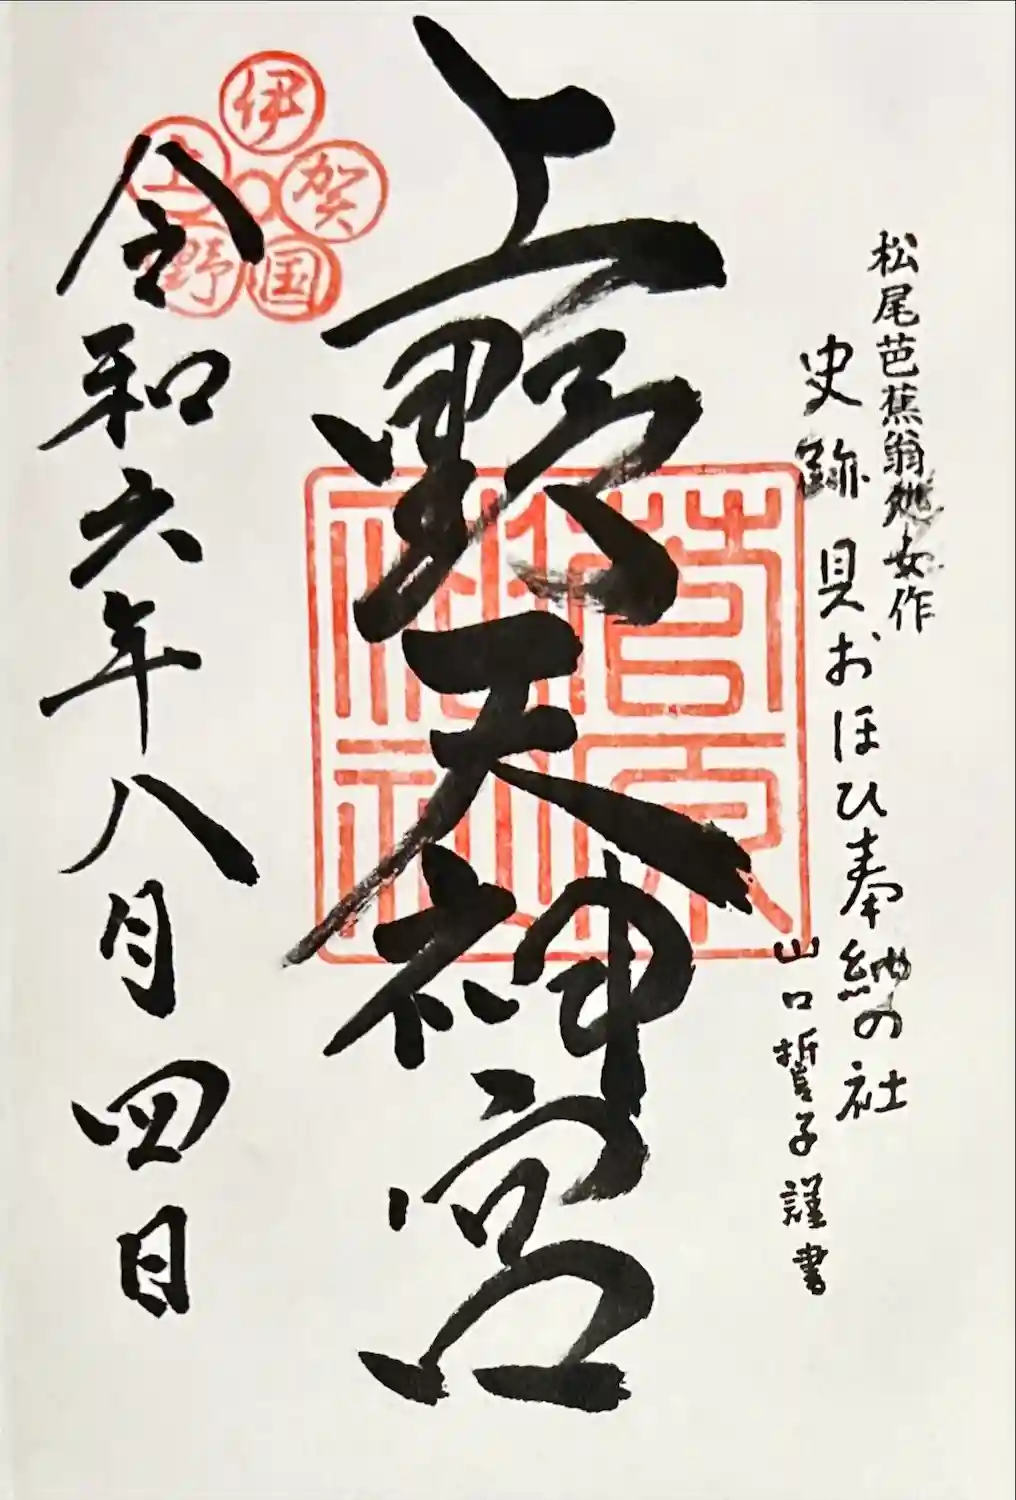 松尾芭蕉翁処女作
史跡 貝おほひ奉納の社
山口誓子謹書
上野天神宮
菅原神社
伊賀国上野
令和六年八月四日